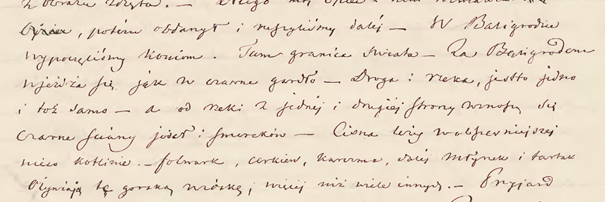 z obrazu zdjęta. —
, potém obdarzył i ruszyliśmy daléj — W Baligrodzie
wypoczęliśmy koniom. Tam granica świata — Za Baligrodem
wjeżdża się jak w czarne gardło — Droga i rzeka, jestto jedno
i toż samo — a od rzeki z jednéj i drugiéj strony wznoszą się
czarne ściany jodeł i smereków — Cisna leży w obszerniejszéj
nieco kotlinie. — folwark, cerkiew, karczma, daléj młynek i tartak
Ożywiają tę górską wioskę, więcéj niż wiele innych. — Przyjazd